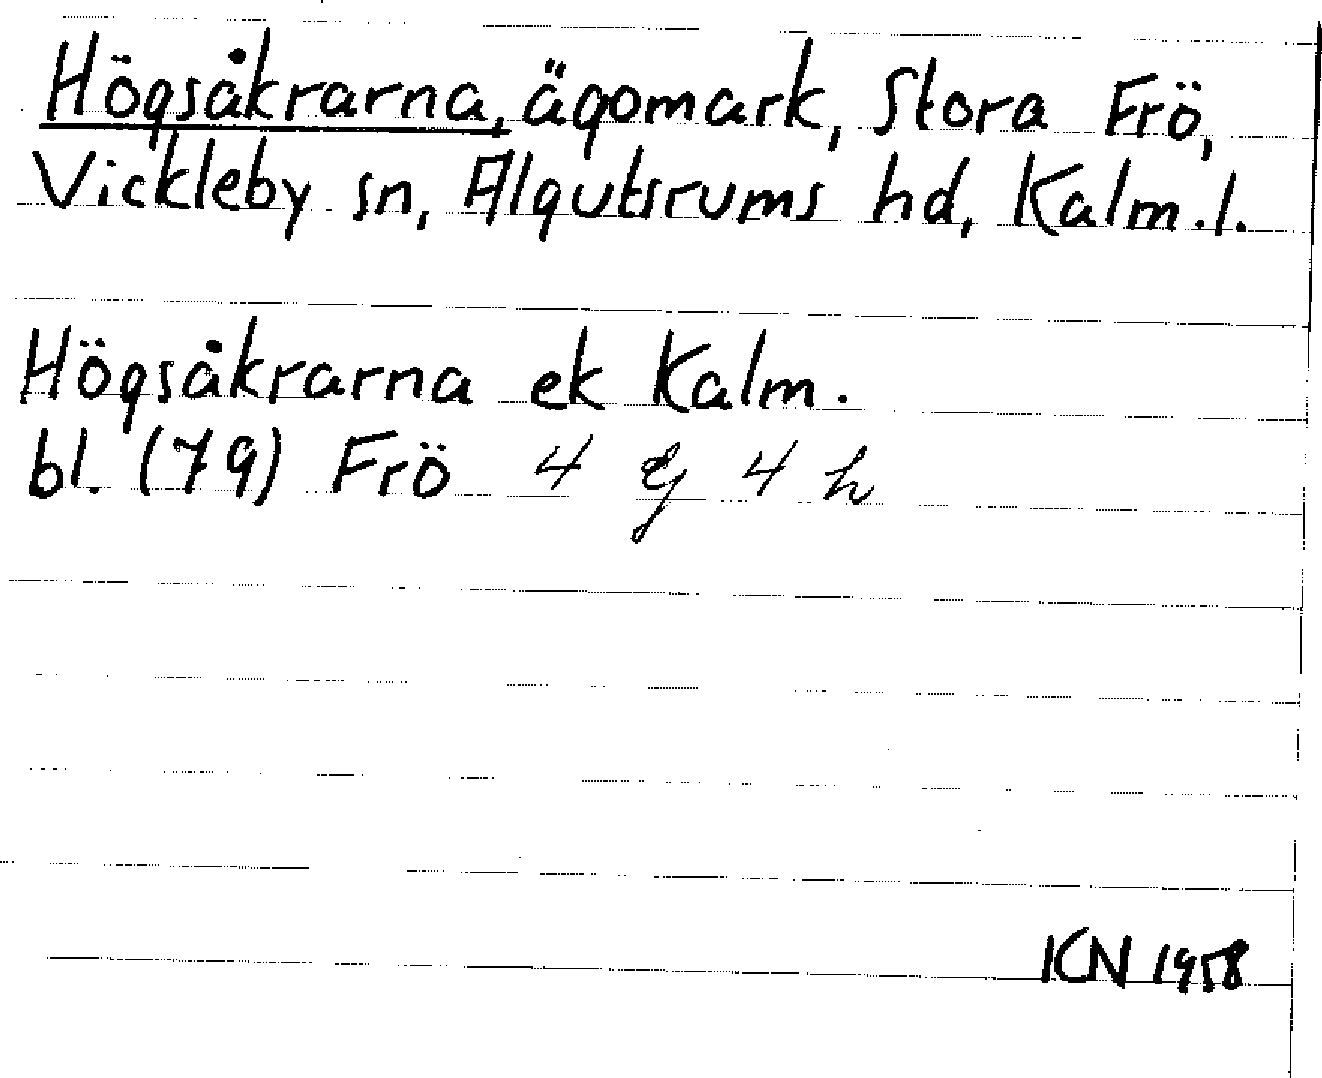 Högsåkrarna, ägomark, Stora Frö,
Vickleby sn, Algutsrums hd, Kalm. l.
Högsåkrarna ek Kalm.
bl. (79) Frö 4 g 4 h
KN 1958